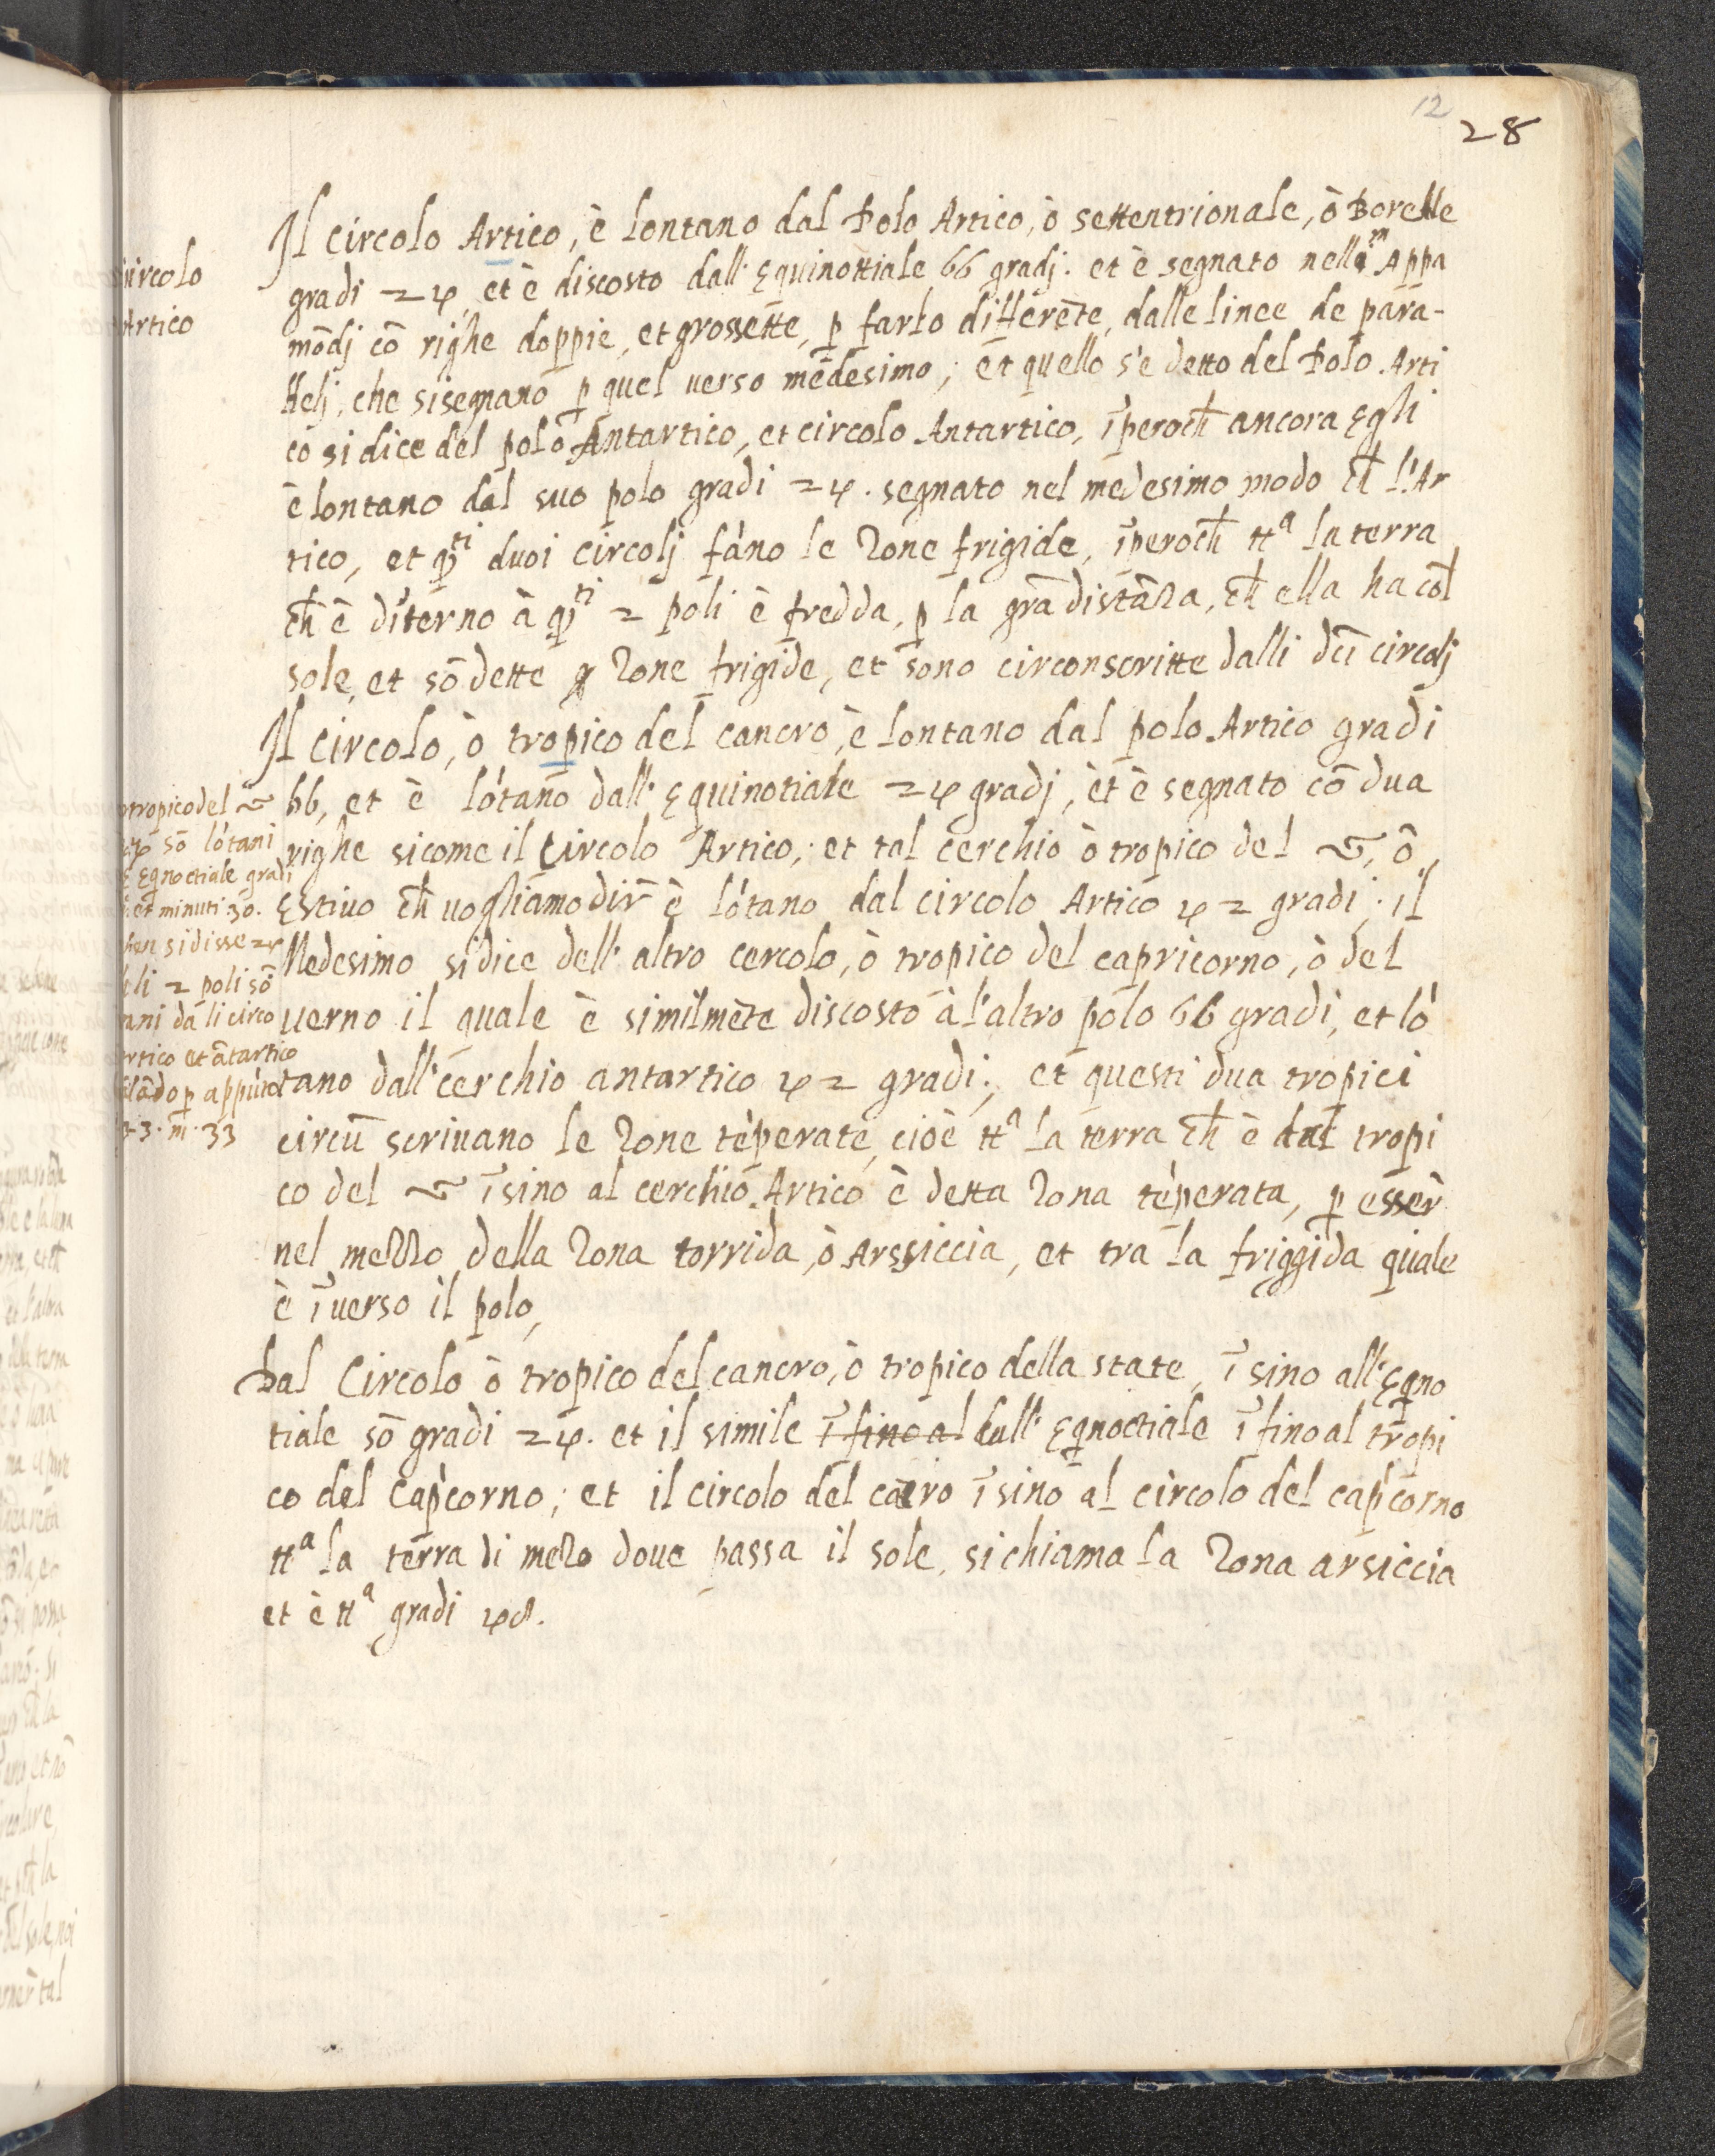 12
28
Il circolo Artico, è lontano dal Polo Artico, ò settentrionale, ò Borelle
gradi 24, et è discosto dall'Equinottiale 66 gradj. et è segnato nelli Appa
circolo
Artico
mōdj cō righe doppie, et grossette, ꝑ farlo differēte, dalle linee de para-
llelj, che si segnano ꝑ quel uerso medesimo; et quello s'è detto del Polo Arti
co si dice del polo Antartico, et circolo Antartico, īperoch̄ ancora Egli
è lontano dal suo polo gradi 24. segnato nel medesimo modo ch̄ l'Ar
tico, et q̄ti duoi circolj fāno le Zone frigide, īperoch̄ ttª la terra
ch̄ è dītorno à q̄ti 2 poli è fredda, ꝑ la grā distāza, ch̄ ella ha col
sole, et sō dette Zone frigide, et sono circonscritte dalli dcī circolj
Il circolo, ò tropico del cancro, è lontano dal polo Artico gradi
66, et è lōtano dall'Equinotiale 24 gradj, et è segnato cō dua
righe sicome il Circolo Artico; et tal cerchio ò tropico del ♋, ò
Estiuo ch̄ uogliamo dir̄ è lōtano dal circolo Artico 42 gradi; il
Medesimo si dice dell'altro cercolo, ò tropico del capricorno, ò del
uerno il quale è similmēte discosto à l'altro polo 66 gradi, et lō
tano dall'cerchio antartico 42 gradi; et questi dua tropici
tropico del ♋
sō lōtani
Eqnoctiale gradi
et minuti 30.
ben si disse 24
li 2 poli sō
tani da li circo
rtico et ātartico
ꝑ appūto
23. m. 33
circū scriuano le Zone tēperate, cioè ttª la terra ch̄ è dal tropi
co del ♋ īsino al cerchio Artico è detta Zona tēperata, ꝑ esser̄
nel mezzo della Zona torrida, ò Arssiccia, et tra la friggida quale
è īuerso il polo,
Dal Circolo ò tropico del cancro, ò tropico della state, ī sino all'Eqno
tiale sō gradi 24. et il simile ī fino al dall'Eqnoctiale ī fino al tropi
co del Cap'corno; et il circolo del cācro ī sino al circolo del cap'corno
ttª la terra di mezo doue passa il sole, si chiama la Zona arsiccia
et è ttª gradi 48.